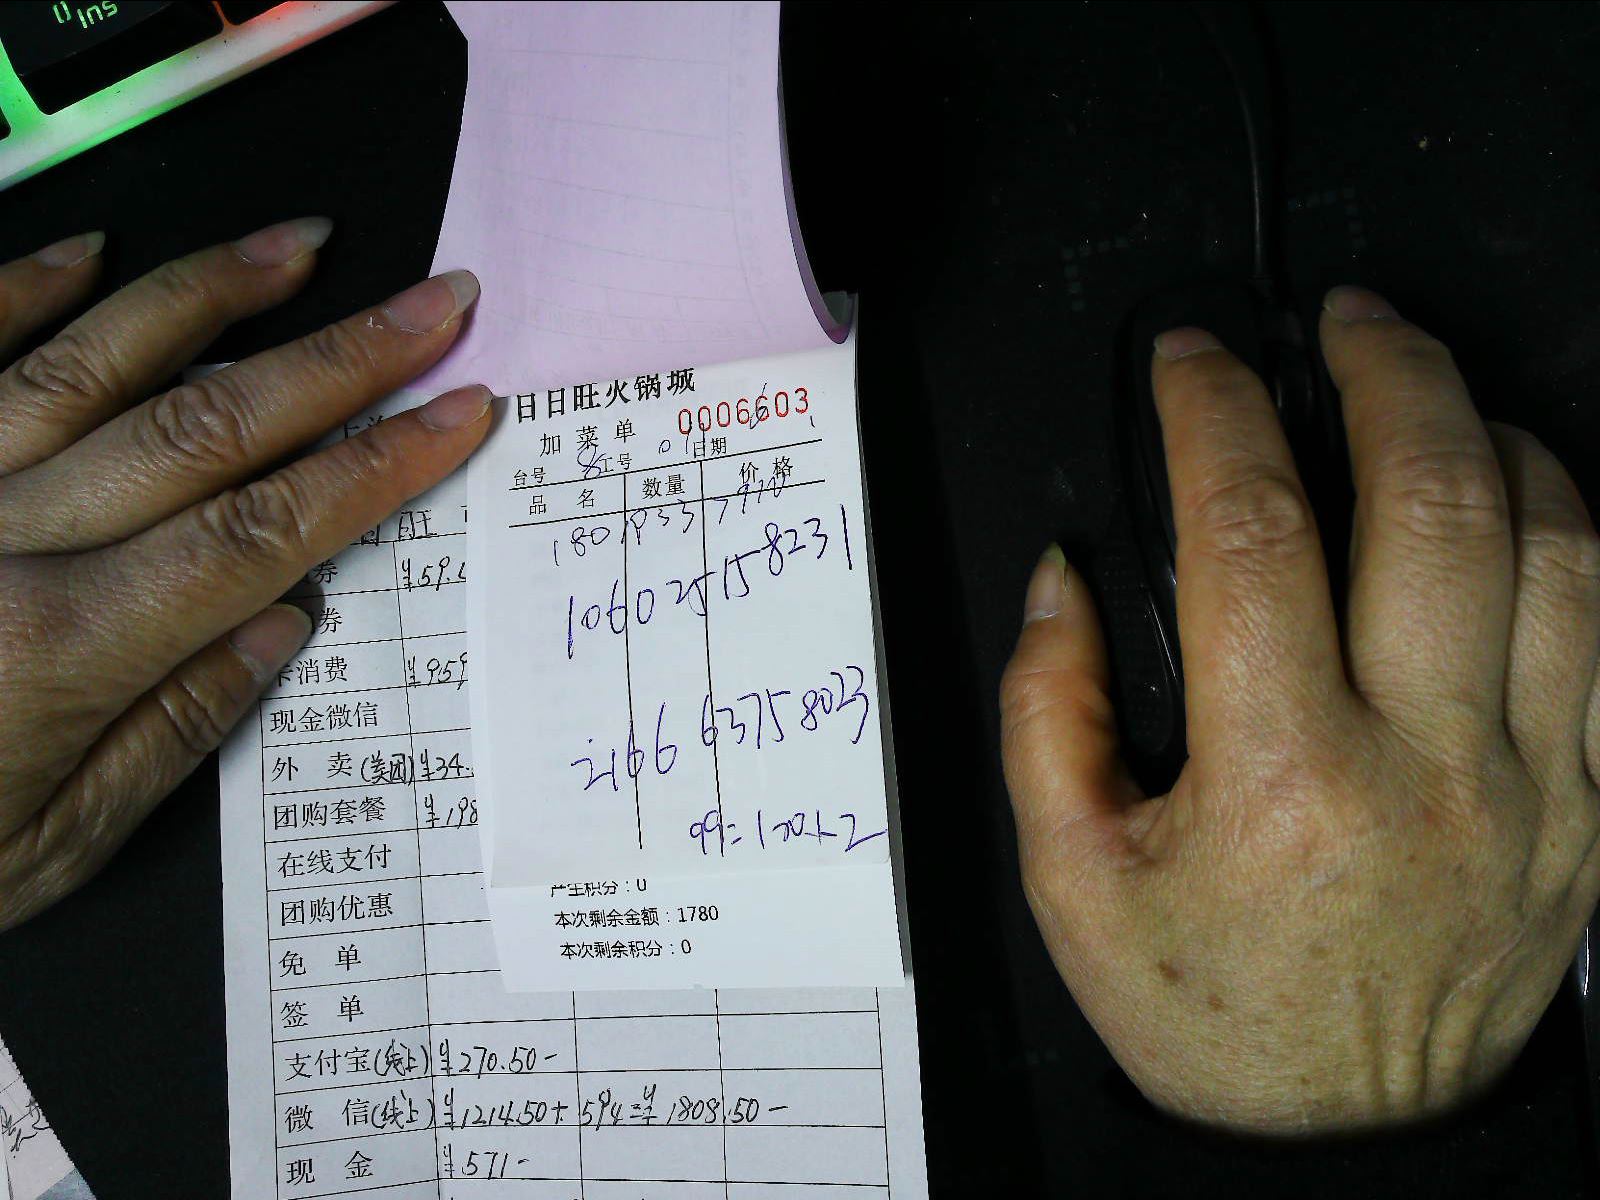 Ins
日日旺火锅城
加菜单 0006603
台号 8 工号 01 日期
品 名 数量 价 格
180
1060 25 15 8231
2166 6375 8023
99=100+2
产生积分：0
本次剩余金额：1780
本次剩余积分：0
旺
券 ¥59.
券
卡消费 ¥959
现金微信
外 卖(美团) ¥34.
团购套餐 ¥198
在线支付
团购优惠
免 单
签 单
支付宝(线上) ¥270.50-
微 信(线上) ¥1214.50+594=¥1808.50-
现 金 ¥571-